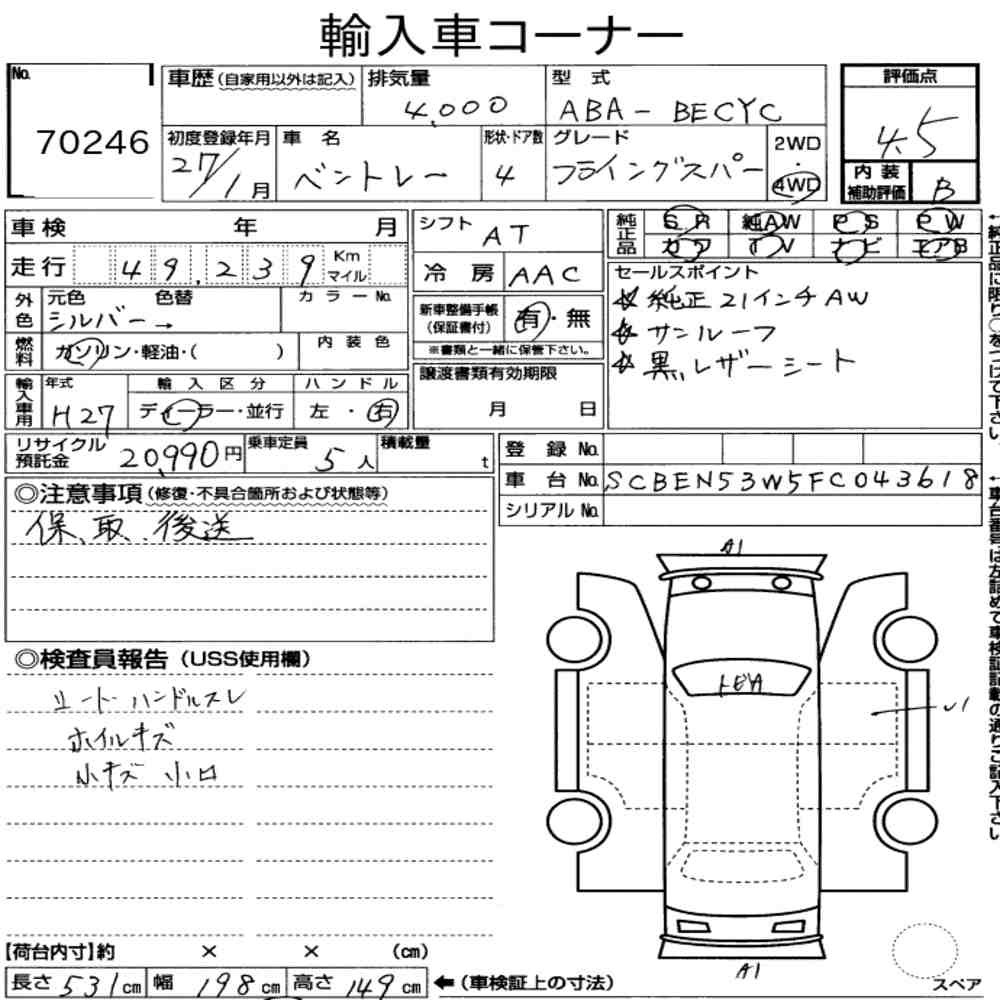 輸入車コーナー
No.
70246
車歴(自家用以外は記入)
排気量
4,000
型 式
ABA - BECYC
評価点
4.5
初度登録年月
27/1月
車 名
ベントレー
形状・ドア数
4
グレード
フライングスパー
2WD
・
4WD
内装
補助評価
B
車検 年 月
走行 49,239 Km マイル
外色
元色 色替
シルバー→
カラーNo.
燃料
ガソリン・軽油・( )
内装色
輸入車用
年式
H27
輸入区分
ディーラー・並行
ハンドル
左・右
シフト
AT
冷房
AAC
新車整備手帳
(保証書付)
有・無
※書類と一緒に保管下さい。
譲渡書類有効期限
月 日
純正品
SR 純AW PS PW
カワ TV ナビ エアB
セールスポイント
☆ 純正21インチAW
☆ サンルーフ
☆ 黒レザーシート
←純正品に限り○をつけて下さい。
リサイクル
預託金
20,990円
乗車定員
5人
積載量
t
登録No.
車台No.
SCBEN53W5FC043618
シリアルNo.
←車台番号は左詰めで車検証記載の通りご記入下さい
◎注意事項(修復・不具合箇所および状態等)
保、取、後送
◎検査員報告(USS使用欄)
シート・ハンドルスレ
ホイルキズ
小キズ 小凹
A1
U1
A1
【荷台内寸】約 × × (cm)
長さ 531cm 幅 198cm 高さ 149cm
←(車検証上の寸法)
スペア